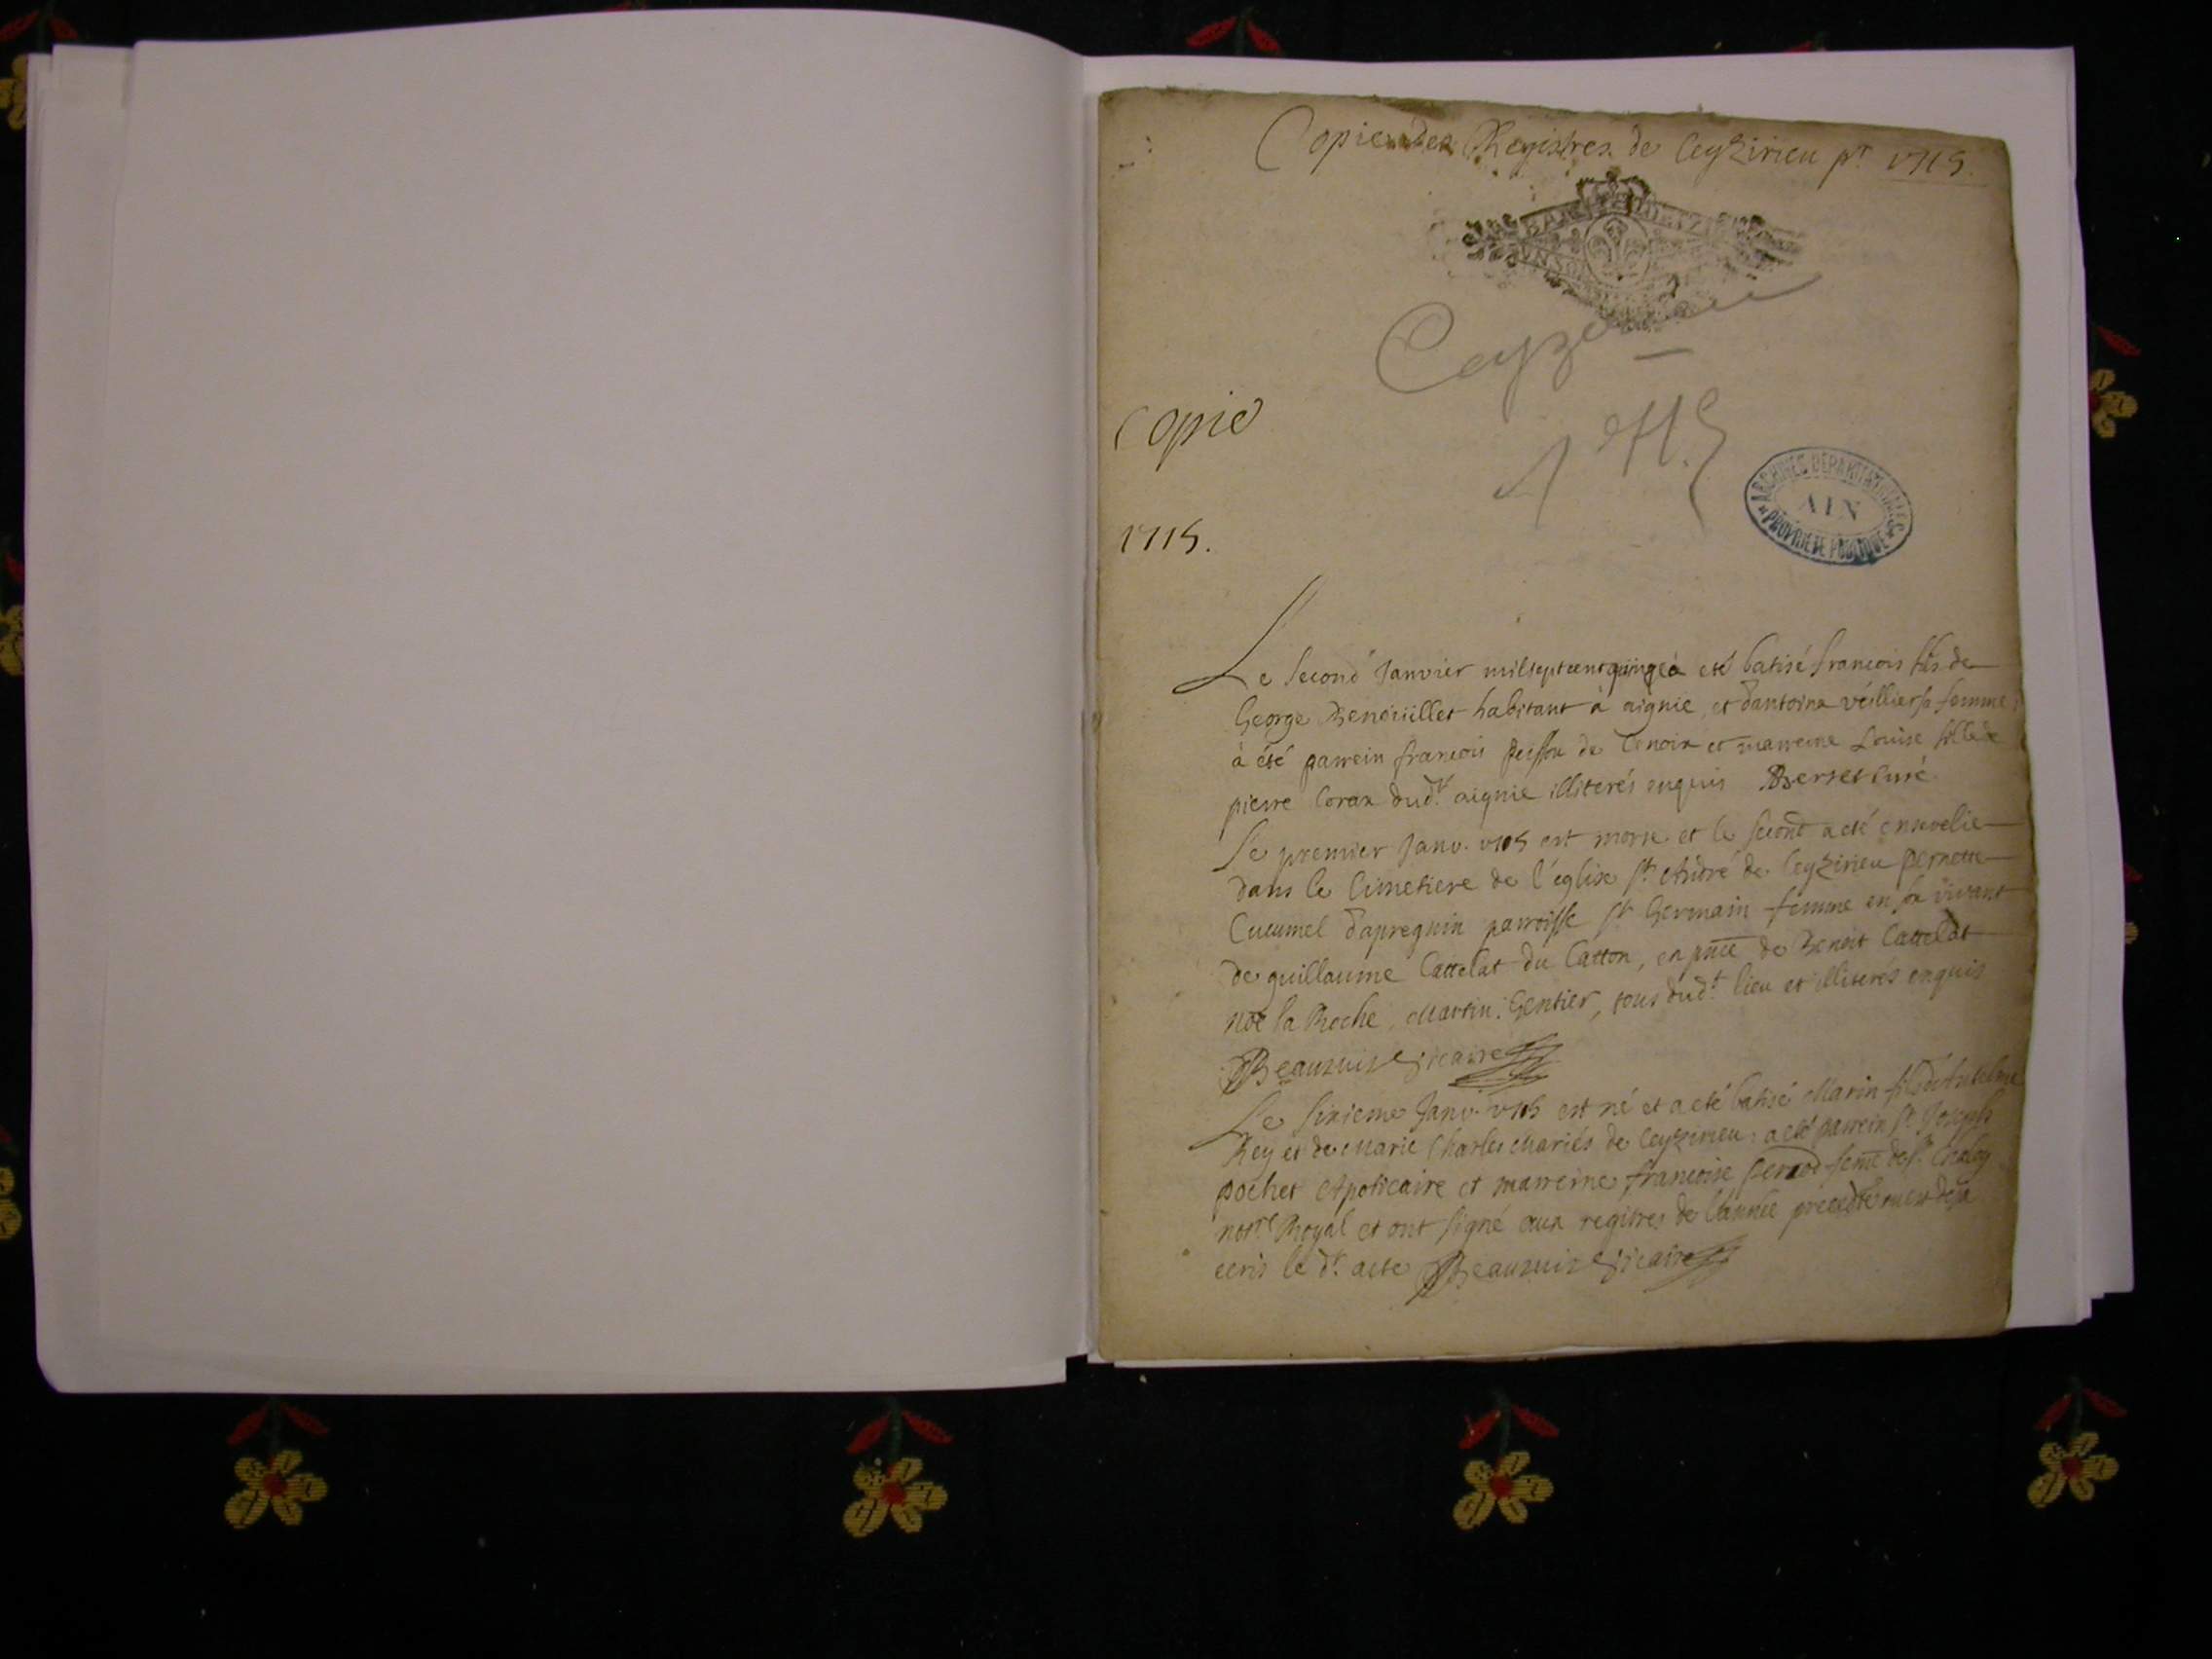 Copie des Registres de Ceyzirieu pr. 1715.
Ceyzirieu
1715
Copie
ARCHIVES DEPARTEMENTALES
AIN
PROPRIETE PUBLIQUE
1715.
Le second Janvier mil sept cent quinze a eté batisé francois fils de
George Benouillet habitant à aignie, et dantoina veillier sa femme
à été parrein francois peisson de et marreine Louise fille de
pierre Corax dudt. aignie illiterés enquis Berset Curé
Le premier Janv. 1715 est morte et le second a eté ensevelie
dans le Cimetiere de l'église St. André de Ceyzirieu pernette
Cucumel d'apregnin parroisse St. Germain femme en son vivant
de guillaume Cattelat du Catton, en pnce de Benoit Cattelat
noé la Roche, Martin Gentier, tous dudt. lieu et illiterés enquis
Beauzuis vicaire
Le sixieme Janv. 1715 est né et a eté batisé Marin fils d'Anthelme
Rey et de Marie Charles Mariés de Ceyzirieu, a eté parrein Sr. Joseph
pochet Apoticaire et marreine francoise femme de Sr.
notre. Royal et ont signé aux regitres de l'année precedte. ou est deja
ecris le dt. acte Beauzuis vicaire